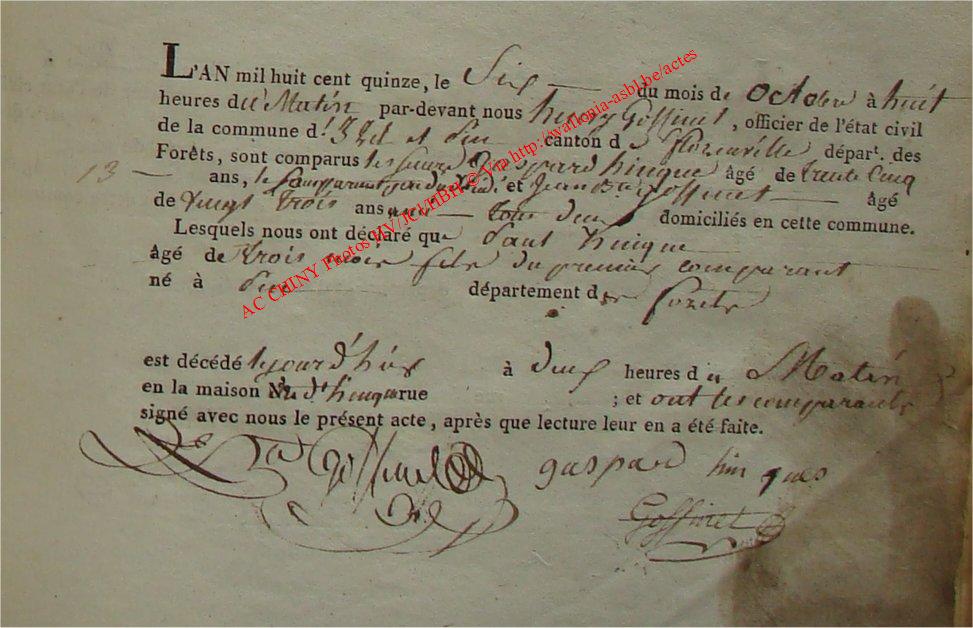 L'AN mil huit cent quinze, le Six du mois de octobre à huit
heures du Matin par-devant nous henry Goffinet, officier de l'état civil
de la commune d' et canton de florenville départ. des
Forêts, sont comparus les sieurs Gaspard hinque âgé de trente Cinq
13
ans, le et Jean Goffinet âgé
de vingt trois ans tous deux domiciliés en cette commune.
Lesquels nous ont déclaré que Paul hinque
âgé de trois mois fils du premier comparant
né à département des forets
est décédé le jour d'hier à deux heures du Matin
en la maison No d'hinque rue ; et ont les comparants
signé avec nous le présent acte, après que lecture leur en a été faite.
Goffinet gaspard hinques
Goffinet
AC CHINY Photos http://wallonia-asbl.be/actes